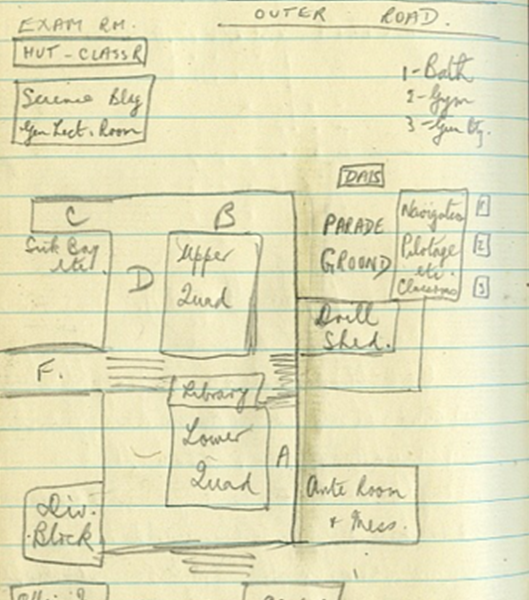 OUTER ROAD.
EXAM RM.
HUT-CLASS R
Science Bldg
Gen Lect. Room
1-Bath
2-Gym
3-Gun Bty.
DAIS
PARADE
GROUND
Navigation
Pilotage
etc.
Classrooms
1
2
3
C
B
Sick Bay
etc.
D
Upper
Quad
Drill
Shed.
F.
Library
Lower
Quad
A
Div.
Block
Ante Room
& Mess.